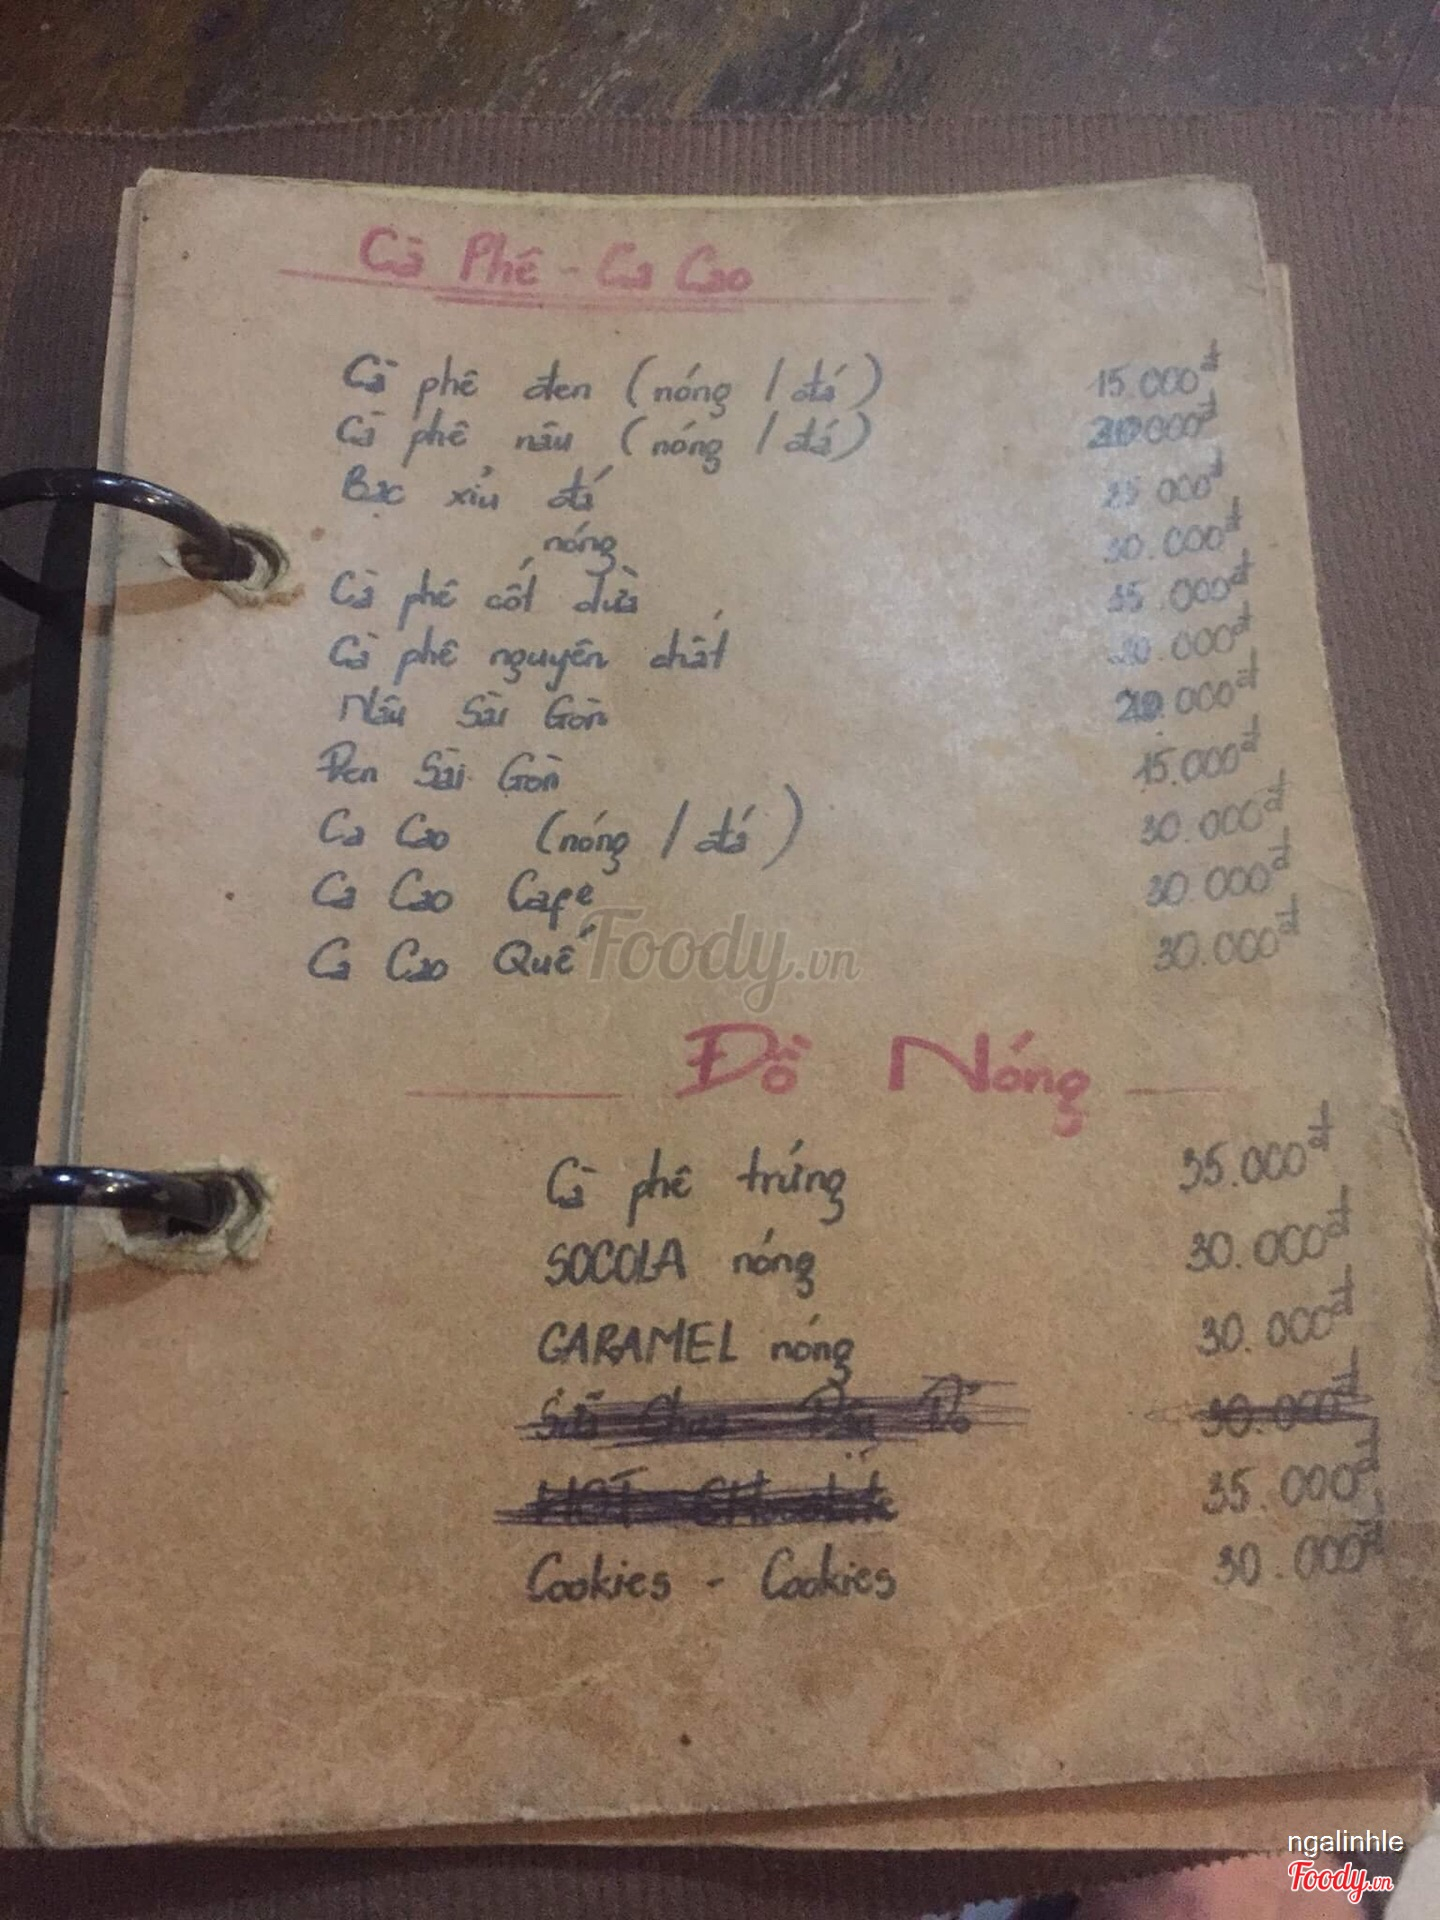 Cà Phê - Ca Cao
Cà phê đen (nóng / đá) 15.000đ
Cà phê nâu (nóng / đá) 20.000đ
Bạc xỉu đá 25.000đ
nóng 30.000đ
Cà phê cốt dừa 35.000đ
Cà phê nguyên chất 20.000đ
Nâu Sài Gòn 20.000đ
Đen Sài Gòn 15.000đ
Ca Cao (nóng / đá) 30.000đ
Ca Cao Cafe 30.000đ
Ca Cao Quế 30.000đ
Foody.vn
Đồ Nóng
Cà phê trứng 35.000đ
SOCOLA nóng 30.000đ
CARAMEL nóng 30.000đ
Sữa Chua 30.000đ
HOT 35.000đ
Cookies - Cookies 30.000đ
ngalinhle
Foody.vn